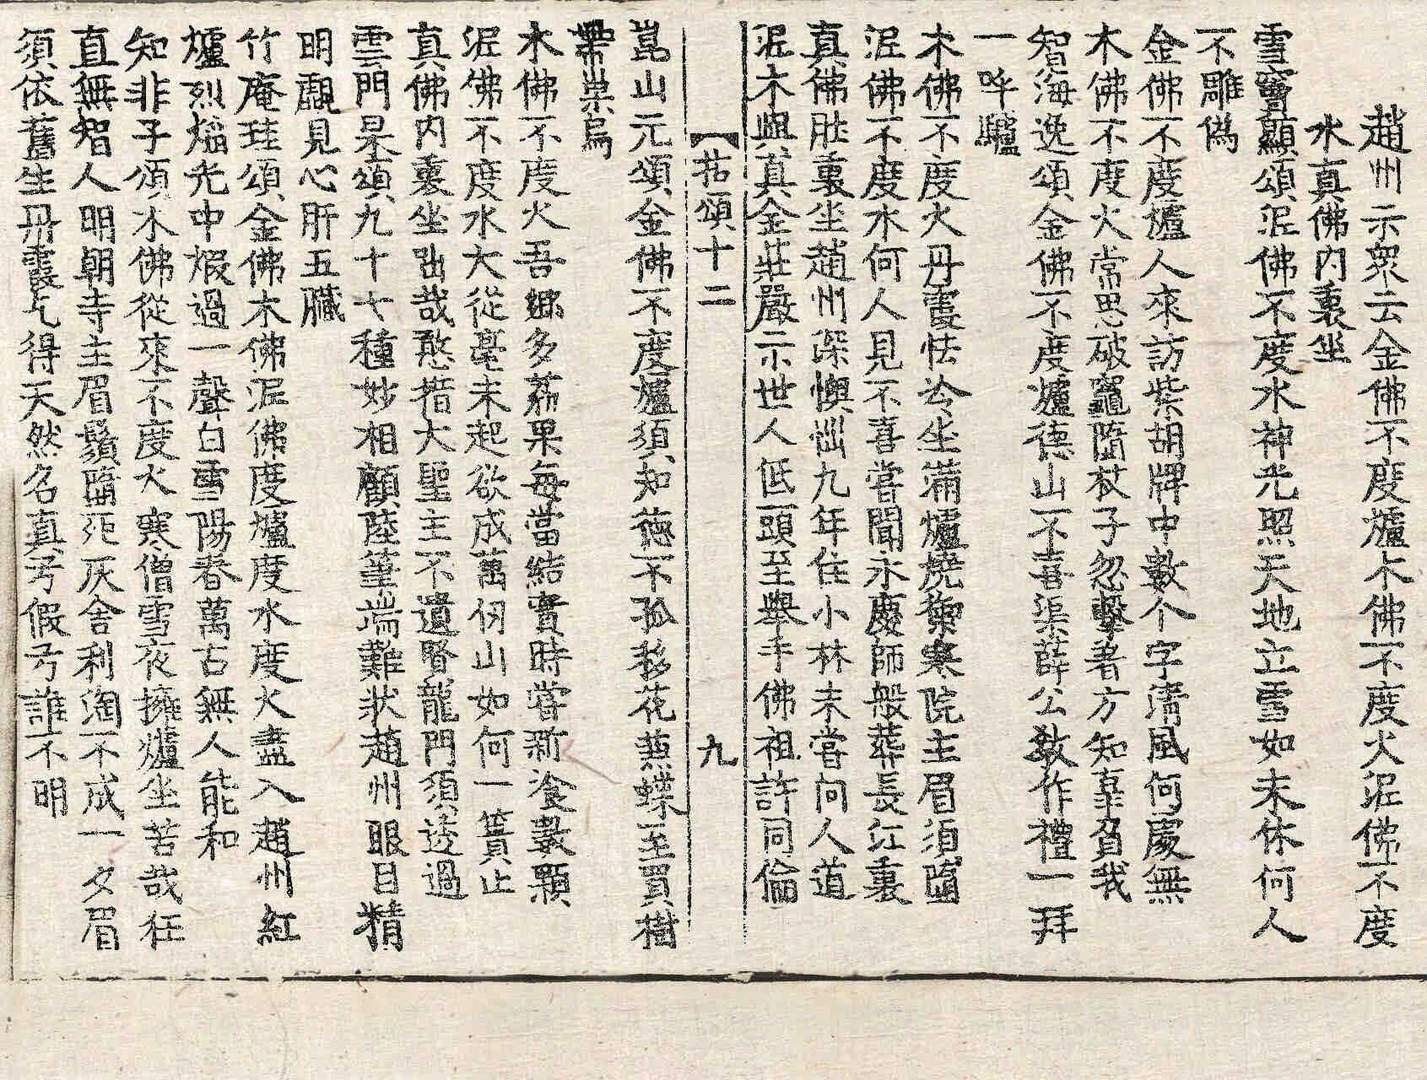 趙州示衆云金佛不度爐木佛不度火泥佛不度
水真佛內裏坐
雪竇顯頌泥佛不度水神光照天地立雪如未休何人
不雕偽
金佛不度爐人來訪紫胡牌中數个字清風何處無
木佛不度火常思破竈墮杖子忽擊著方知辜負我
智海逸頌金佛不度爐德山不喜渠薛公教作禮一拜
一呼驢
木佛不度火丹霞怯冷坐滿爐燒禦寒院主眉須墮
泥佛不度水何人見不喜嘗聞永慶師般葬長江裏
真佛肚裏坐趙州深懊㑳九年住小林未嘗向人道
泥木與真金莊嚴示世人低頭至舉手佛祖許同倫
【拈頌十二 九
崑山元頌金佛不度爐須知德不孤移花蒸蝶至買樹
帶巢烏
木佛不度火吾鄉多荔果每當結實時嘗新飡數顆
泥佛不度水大從毫末起欲成萬仞山如何一簣止
真佛內裏坐咄哉憨措大聖主不遺賢龍門須透過
雲門杲頌九十七種妙相顧陸筆端難狀趙州眼目精
明覰見心肝五臟
竹庵珪頌金佛木佛泥佛度爐度水度火盡入趙州紅
爐烈焰光中煅過一聲白雪陽春萬古無人能和
知非子頌木佛從來不度火寒僧雪夜擁爐坐苦哉枉
直無智人明朝寺主眉鬚墮死灰舍利淘不成一夕眉
須依舊生丹霞乞得天然名真兮假兮誰不明